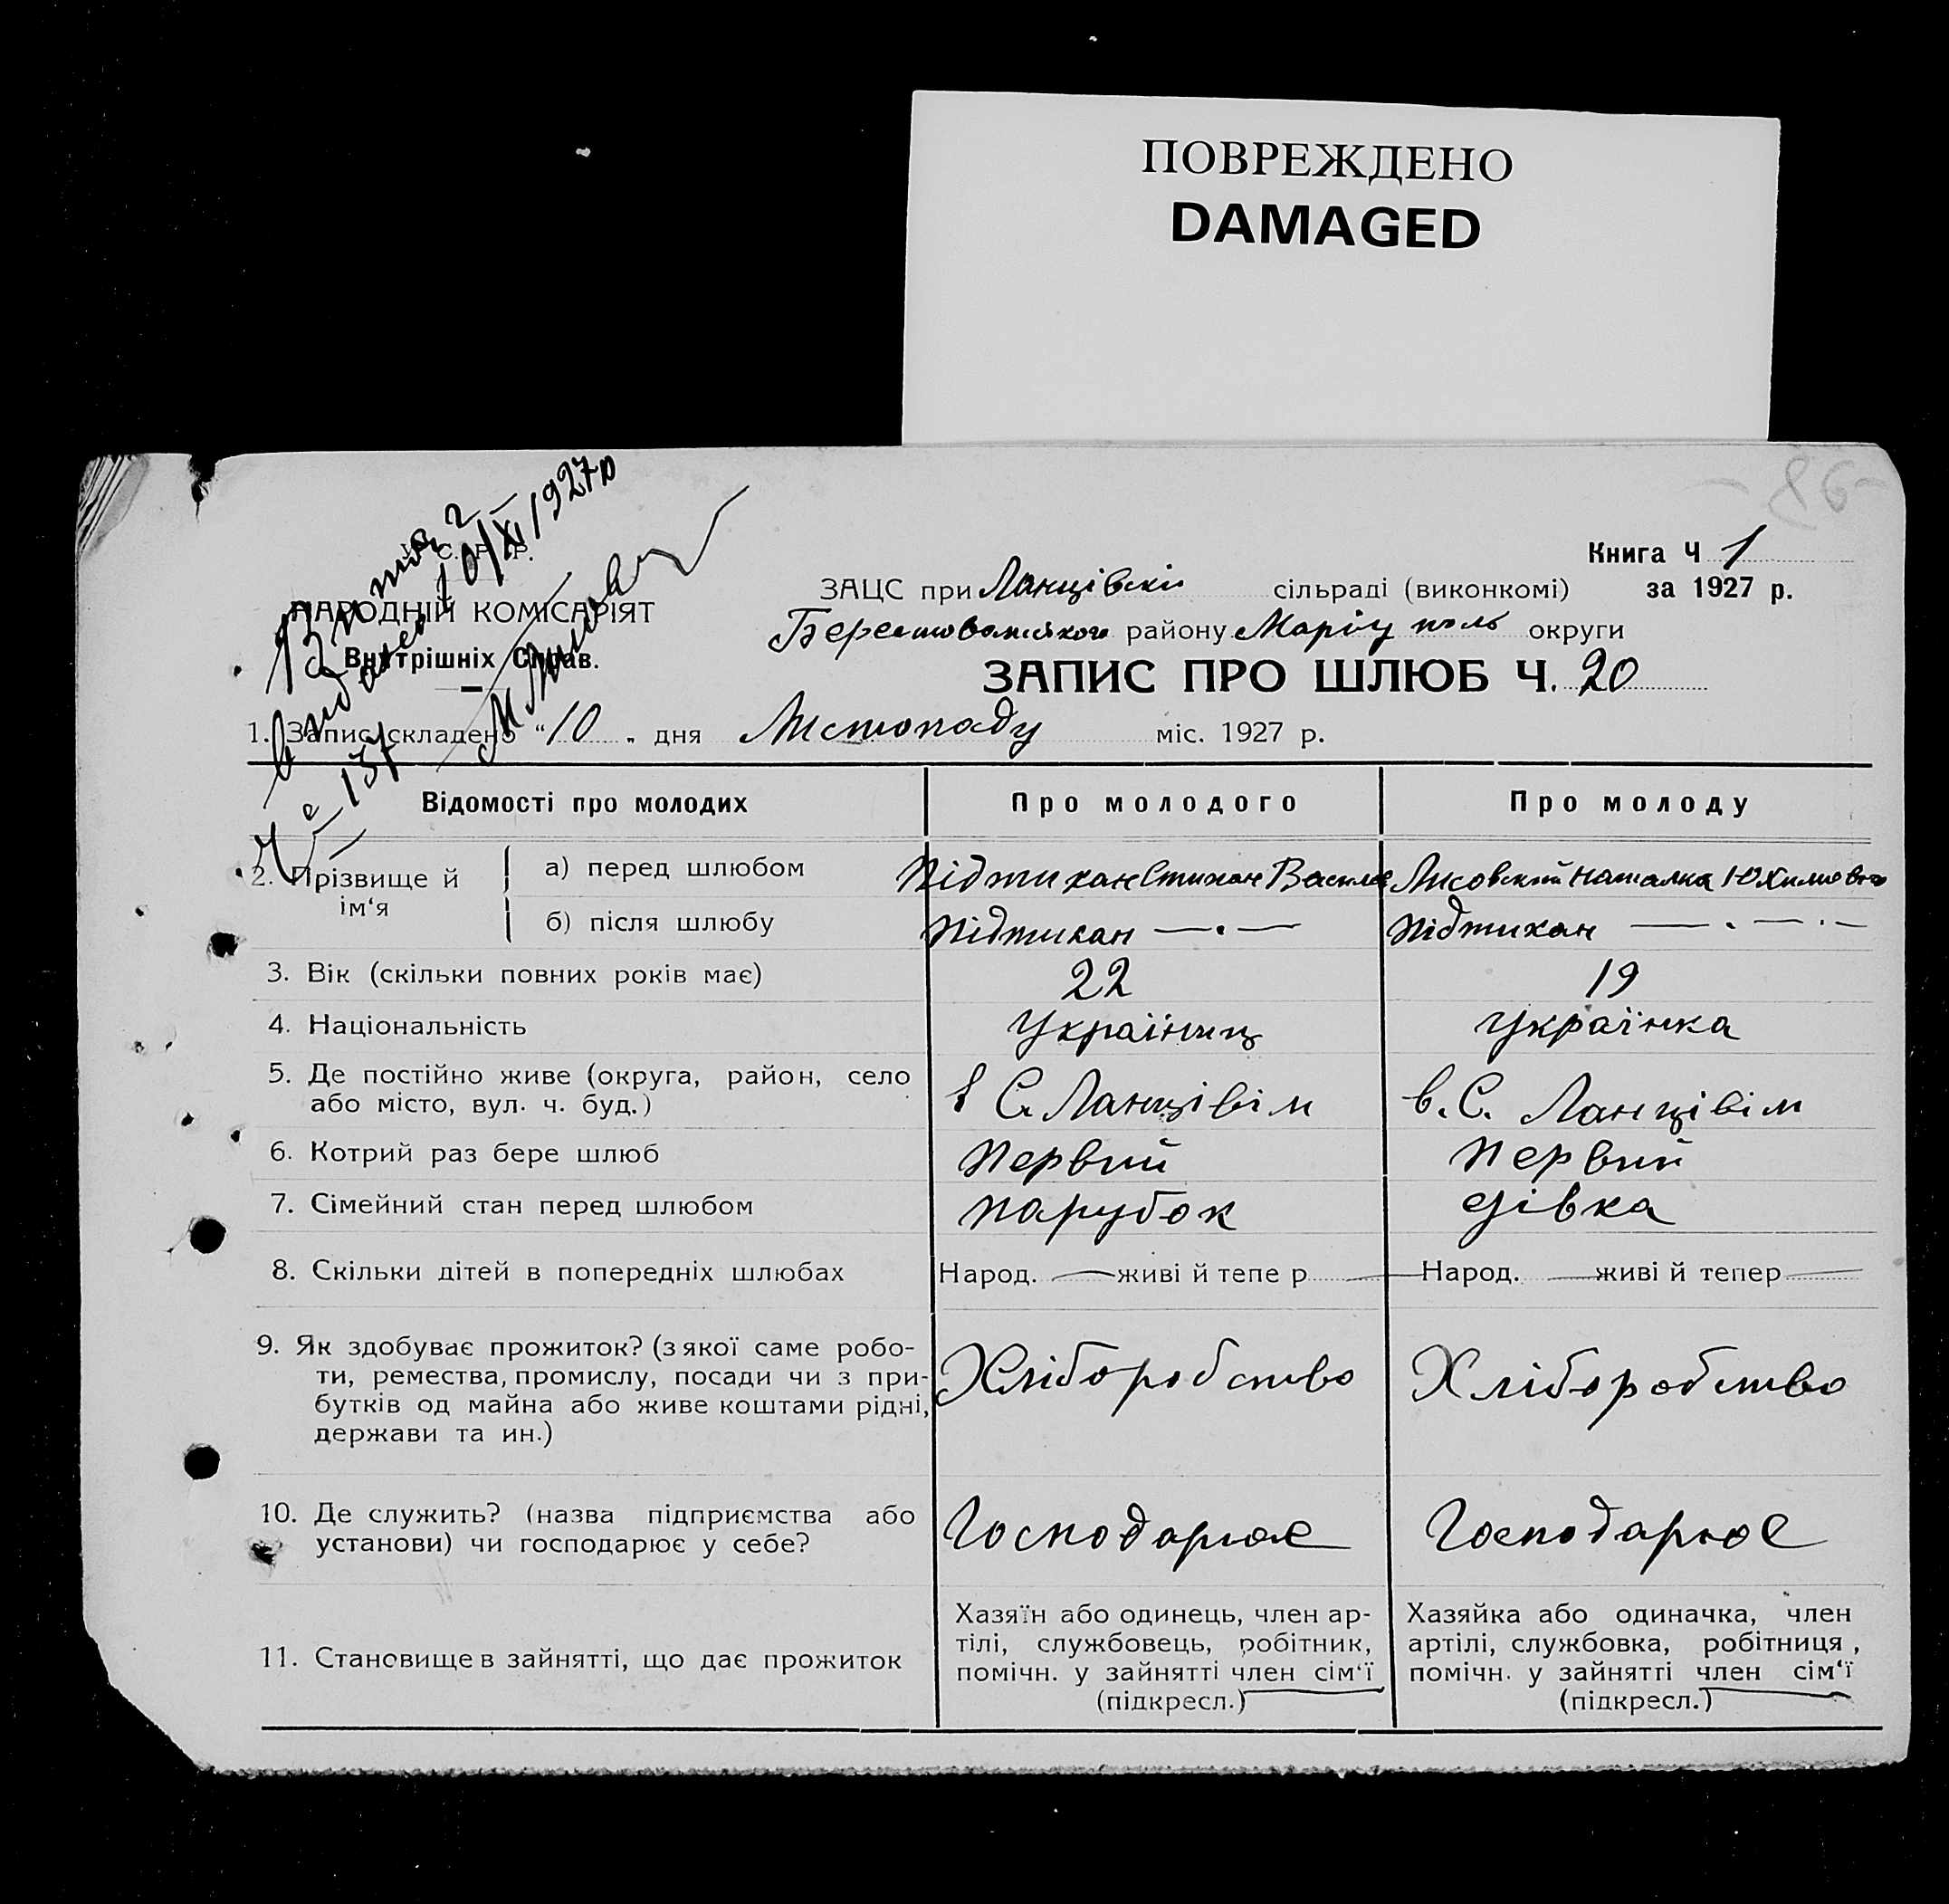 ПОВРЕЖДЕНО
DAMAGED
86
У. С. Р. Р.
НАРОДНІЙ КОМІСАРІЯТ
Внутрішніх Справ.
10/XI/1927р
137
Книга Ч 1
ЗАЦС при Ланцівскі сільраді (виконкомі) за 1927 р.
району Маріуполь округи
ЗАПИС ПРО ШЛЮБ Ч. 20
1. Запис складено "10" дня Листопаду міс. 1927 р.
Відомості про молодих Про молодого Про молоду
2. Прізвище й ім'я а) перед шлюбом Підтикан Степан Василь Лисовский Наталка Юхимовна
б) після шлюбу Підтикан —·— Підтикан —·—·—
3. Вік (скільки повних років має) 22 19
4. Національність Українец Українка
5. Де постійно живе (округа, район, село
або місто, вул. ч. буд.) в С. Ланцівім в. С. Ланцівім
6. Котрий раз бере шлюб Первий Первий
7. Сімейний стан перед шлюбом парубок дівка
8. Скільки дітей в попередніх шлюбах Народ. — живі й тепер — Народ. — живі й тепер —
9. Як здобуває прожиток? (з якої саме робо-
ти, ремества, промислу, посади чи з при- Хліборобство Хліборобство
бутків од майна або живе коштами рідні,
держави та ин.)
10. Де служить? (назва підприємства або
установи) чи господарює у себе? Господарює Господарює
11. Становище в зайнятті, що дає прожиток
Хазяїн або одинець, член ар-
тілі, службовець, робітник,
помічн. у зайнятті член сім'ї
(підкресл.)
Хазяйка або одиначка, член
артілі, службовка, робітниця,
помічн. у зайнятті член сім'ї
(підкресл.)